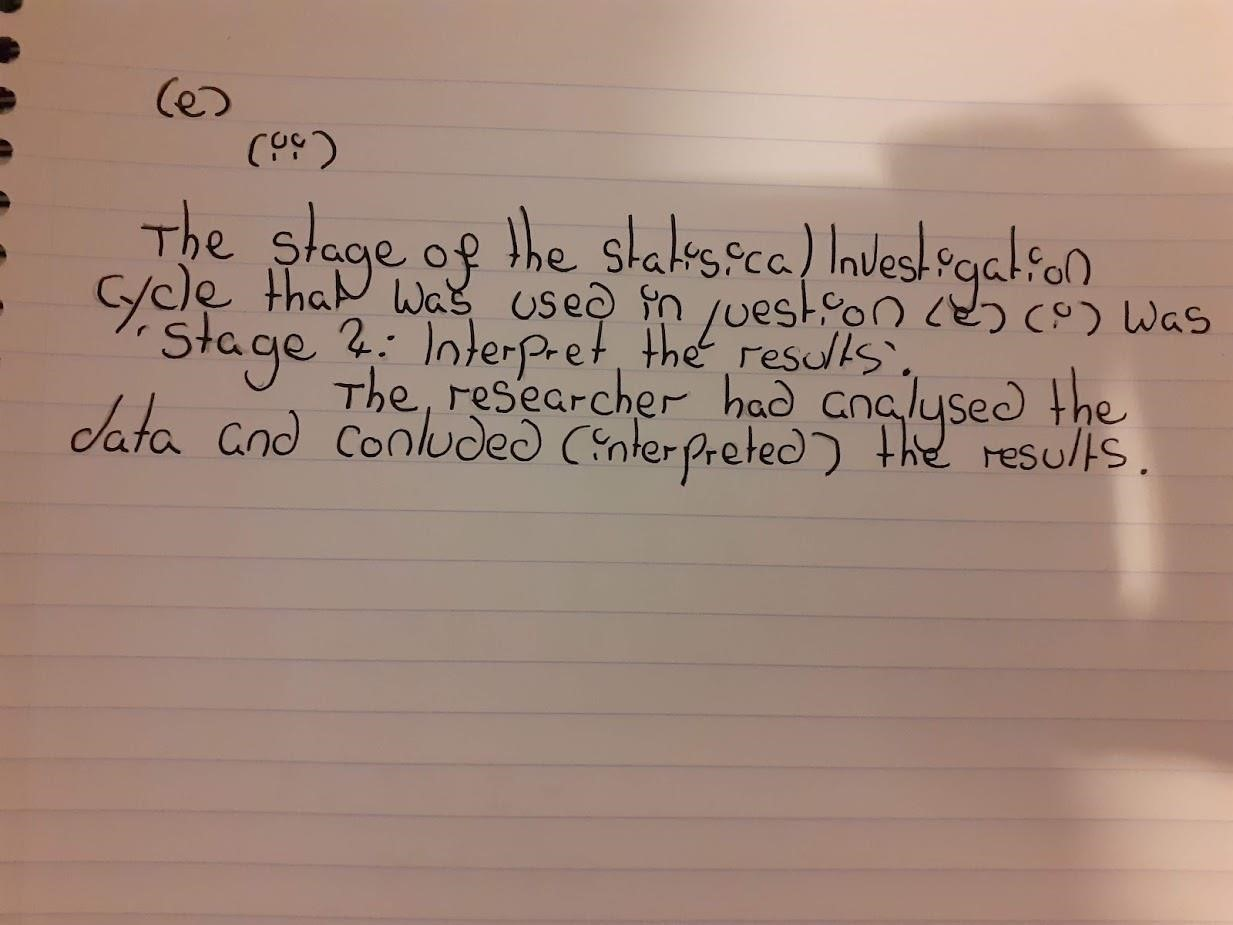 (e)
(ii)
The stage of the statisical Investigation
cycle that was used in question (e) (i) was
'Stage 4: Interpret the results'.
The researcher had analysed the
data and conluded (interpreted) the results.